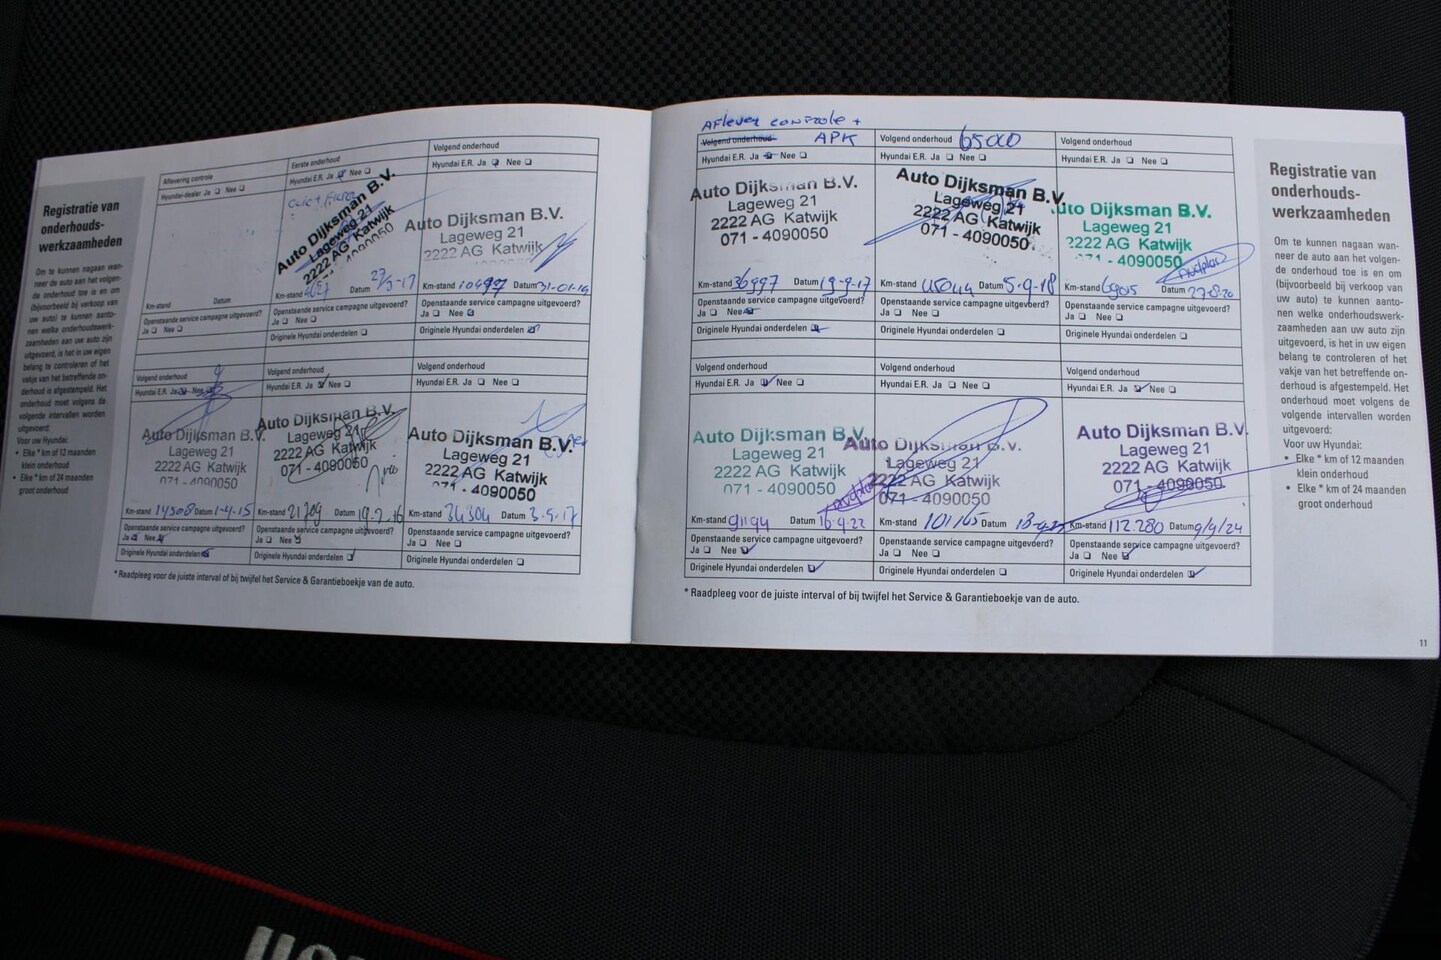 Registratie van
onderhouds-
werkzaamheden
Om te kunnen nagaan wan-
neer de auto aan het volgen-
de onderhoud toe is en om
(bijvoorbeeld bij verkoop van
uw auto) te kunnen aanto-
nen welke onderhoudswerk-
zaamheden aan uw auto zijn
uitgevoerd, is het in uw eigen
belang te controleren of het
vakje van het betreffende on-
derhoud is afgestempeld. Het
onderhoud moet volgens de
volgende intervallen worden
uitgevoerd:
Voor uw Hyundai:
• Elke * km of 12 maanden
klein onderhoud
• Elke * km of 24 maanden
groot onderhoud
Aflevering controle
Hyundai-dealer Ja Nee
Km-stand Datum
Openstaande service campagne uitgevoerd?
Ja Nee
Eerste onderhoud
Hyundai E.R. Ja Nee
Auto Dijksman B.V.
Lageweg 21
2222 AG Katwijk
071 - 4090050
Km-stand Datum
Openstaande service campagne uitgevoerd?
Ja Nee
Originele Hyundai onderdelen
Volgend onderhoud
Hyundai E.R. Ja Nee
Auto Dijksman B.V.
Lageweg 21
2222 AG Katwijk
Km-stand Datum
Openstaande service campagne uitgevoerd?
Ja Nee
Originele Hyundai onderdelen
Volgend onderhoud
Hyundai E.R. Ja Nee
Auto Dijksman B.V.
Lageweg 21
2222 AG Katwijk
071 - 4090050
Km-stand 14508 Datum 1-4-15
Openstaande service campagne uitgevoerd?
Ja Nee
Originele Hyundai onderdelen
Volgend onderhoud
Hyundai E.R. Ja Nee
Auto Dijksman B.V.
Lageweg 21
2222 AG Katwijk
071 - 4090050
Km-stand 21709 Datum 19-2-16
Openstaande service campagne uitgevoerd?
Ja Nee
Originele Hyundai onderdelen
Volgend onderhoud
Hyundai E.R. Ja Nee
Auto Dijksman B.V.
Lageweg 21
2222 AG Katwijk
071 - 4090050
Km-stand 34304 Datum 3-9-17
Openstaande service campagne uitgevoerd?
Ja Nee
Originele Hyundai onderdelen
* Raadpleeg voor de juiste interval of bij twijfel het Service & Garantieboekje van de auto.
Aflever controle +
Volgend onderhoud APK
Hyundai E.R. Ja Nee
Auto Dijksman B.V.
Lageweg 21
2222 AG Katwijk
071 - 4090050
Km-stand 36997 Datum 19-9-17
Openstaande service campagne uitgevoerd?
Ja Nee
Originele Hyundai onderdelen
Volgend onderhoud 65000
Hyundai E.R. Ja Nee
Auto Dijksman B.V.
Lageweg 21
2222 AG Katwijk
071 - 4090050
Km-stand Datum 5-9-18
Openstaande service campagne uitgevoerd?
Ja Nee
Originele Hyundai onderdelen
Volgend onderhoud
Hyundai E.R. Ja Nee
Auto Dijksman B.V.
Lageweg 21
2222 AG Katwijk
071 - 4090050
Km-stand 69015 Datum 27-8-20
Openstaande service campagne uitgevoerd?
Ja Nee
Originele Hyundai onderdelen
Volgend onderhoud
Hyundai E.R. Ja Nee
Auto Dijksman B.V.
Lageweg 21
2222 AG Katwijk
071 - 4090050
Km-stand 91194 Datum 16-9-22
Openstaande service campagne uitgevoerd?
Ja Nee
Originele Hyundai onderdelen
Volgend onderhoud
Hyundai E.R. Ja Nee
Auto Dijksman B.V.
Lageweg 21
2222 AG Katwijk
071 - 4090050
Km-stand 101165 Datum
Openstaande service campagne uitgevoerd?
Ja Nee
Originele Hyundai onderdelen
Volgend onderhoud
Hyundai E.R. Ja Nee
Auto Dijksman B.V.
Lageweg 21
2222 AG Katwijk
071 - 4090050
Km-stand 112.280 Datum 9/9/24
Openstaande service campagne uitgevoerd?
Ja Nee
Originele Hyundai onderdelen
* Raadpleeg voor de juiste interval of bij twijfel het Service & Garantieboekje van de auto.
Registratie van
onderhouds-
werkzaamheden
Om te kunnen nagaan wan-
neer de auto aan het volgen-
de onderhoud toe is en om
(bijvoorbeeld bij verkoop van
uw auto) te kunnen aanto-
nen welke onderhoudswerk-
zaamheden aan uw auto zijn
uitgevoerd, is het in uw eigen
belang te controleren of het
vakje van het betreffende on-
derhoud is afgestempeld. Het
onderhoud moet volgens de
volgende intervallen worden
uitgevoerd:
Voor uw Hyundai:
• Elke * km of 12 maanden
klein onderhoud
• Elke * km of 24 maanden
groot onderhoud
11